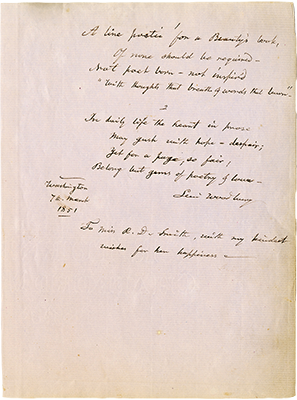 A line poetic! for a Beauty's book,
Of none should be required -
Not poet born - not inspired
"With thoughts that breathe & words that burn".
2
In daily life the heart in prose
May gush with hope - despair;
Yet for a page, so fair,
Belong but gems of poetry & love -
Washington
7th March
1851
To Miss R. D. Smith, with my kindest
wishes for her happiness -